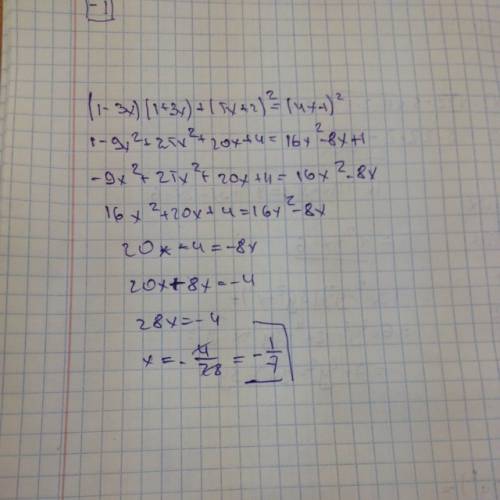 -1
(1-3x)(1+3x)+(5x+2)²=(4x-1)²
1-9x²+25x²+20x+4=16x²-8x+1
-9x²+25x²+20x+4=16x²-8x
16x²+20x+4=16x²-8x
20x+4=-8x
20x+8x=-4
28x=-4
x=-4/28=-1/7